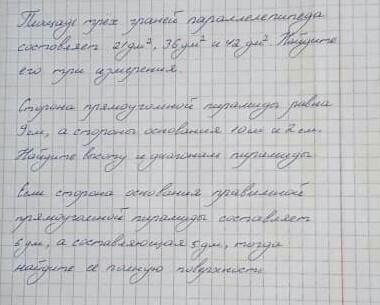 Площадь трех граней параллелепипеда
составляет 21 дм², 36 дм² и 42 дм². Найдите
его три измерения.
Сторона прямоугольной пирамиды равна
9 см, а стороны основания 10 см и 2 см.
Найдите высоту и диагонали пирамиды
Если сторона основания правильной
прямоугольной пирамиды составляет
6 дм, а составляющая 5 дм, тогда
найдите её полную поверхность